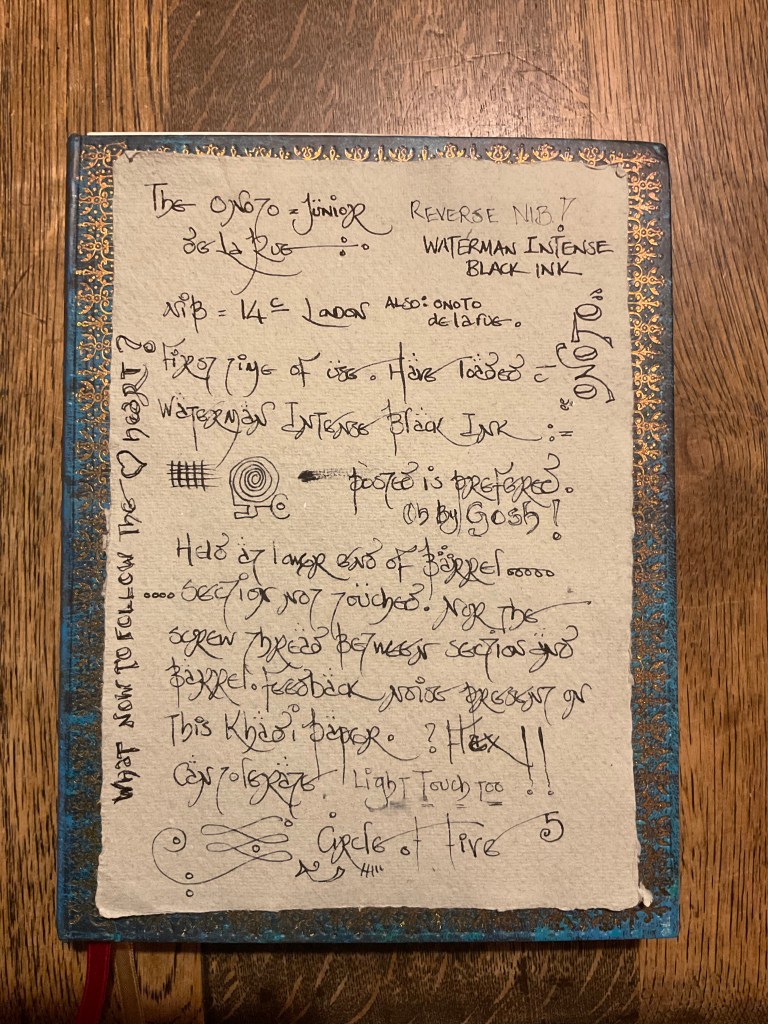 The Onoto = Junior
REVERSE NIB!
de La Rue
WATERMAN INTENSE
BLACK INK
NiB = 14c London
ALSO: ONOTO
de la rue.
ONOTO
First time of use. Have loaded
Waterman Intense Black Ink
posted is preferred.
Oh By Gosh!
Held at lower end of Barrel.....
.... section not touched. Nor the
screw thread between section and
Barrel. Feedback noise present on
This Khadi paper. ? Hex !!
Can tolerate. Light Touch too
Circle of Five 5
WHAT NOW TO FOLLOW THE ♡ heart?